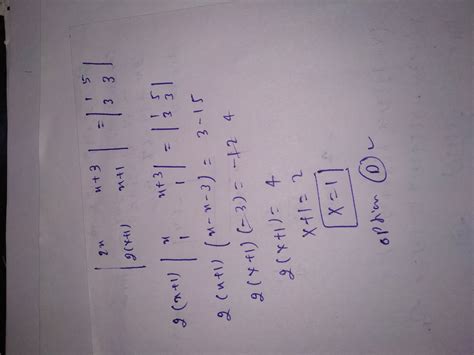 | 2x x+3 | = | 1 5 |
| 2(x+1) x+1 | | 3 3 |
2(x+1) | x x+3 | = | 1 5 |
| 1 1 | | 3 3 |
2(x+1) (x-x-3) = 3-15
2(x+1) (-3) = -12 4
2(x+1) = 4
x+1 = 2
x=1
option D